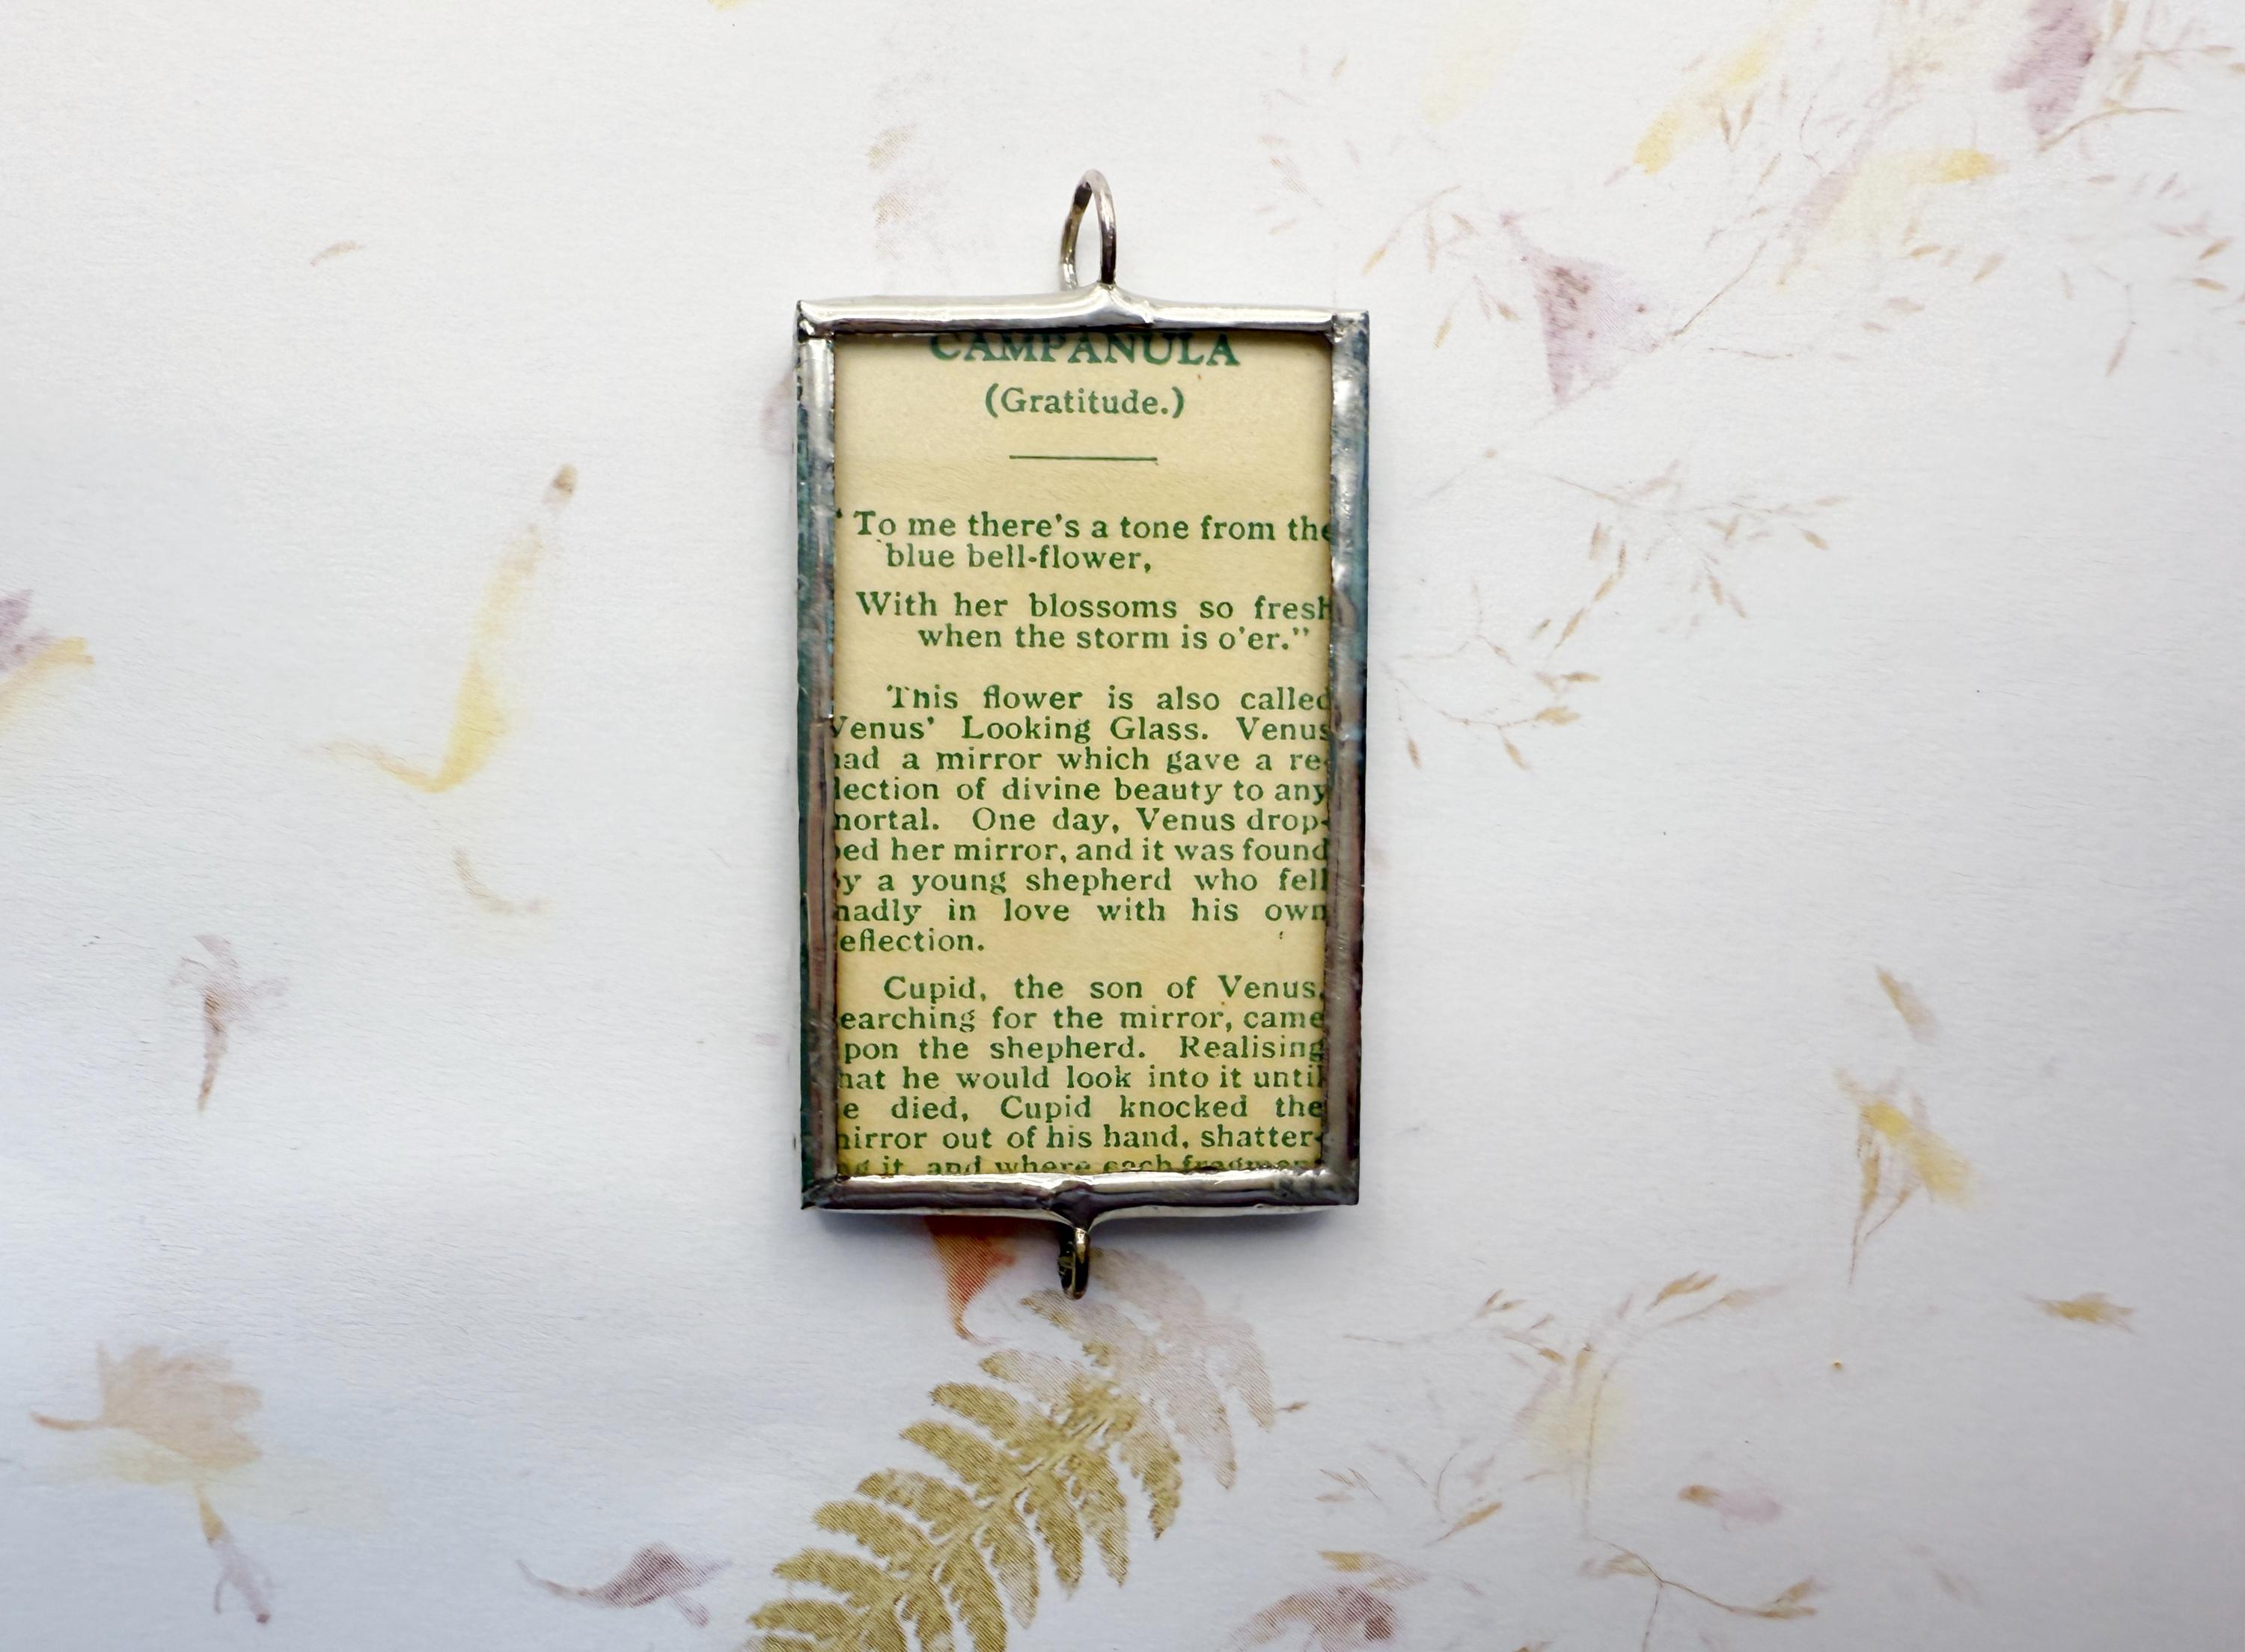 CAMPANULA
(Gratitude.)
‘To me there's a tone from the
blue bell-flower,
With her blossoms so fresh
when the storm is o'er.”
This flower is also called
Venus’ Looking Glass. Venus
had a mirror which gave a re-
lection of divine beauty to any
mortal. One day, Venus drop-
ped her mirror, and it was found
by a young shepherd who fell
madly in love with his own
eflection.
Cupid, the son of Venus,
earching for the mirror, came
pon the shepherd. Realising
hat he would look into it until
e died, Cupid knocked the
mirror out of his hand, shatter-
ng it, and where each fragment